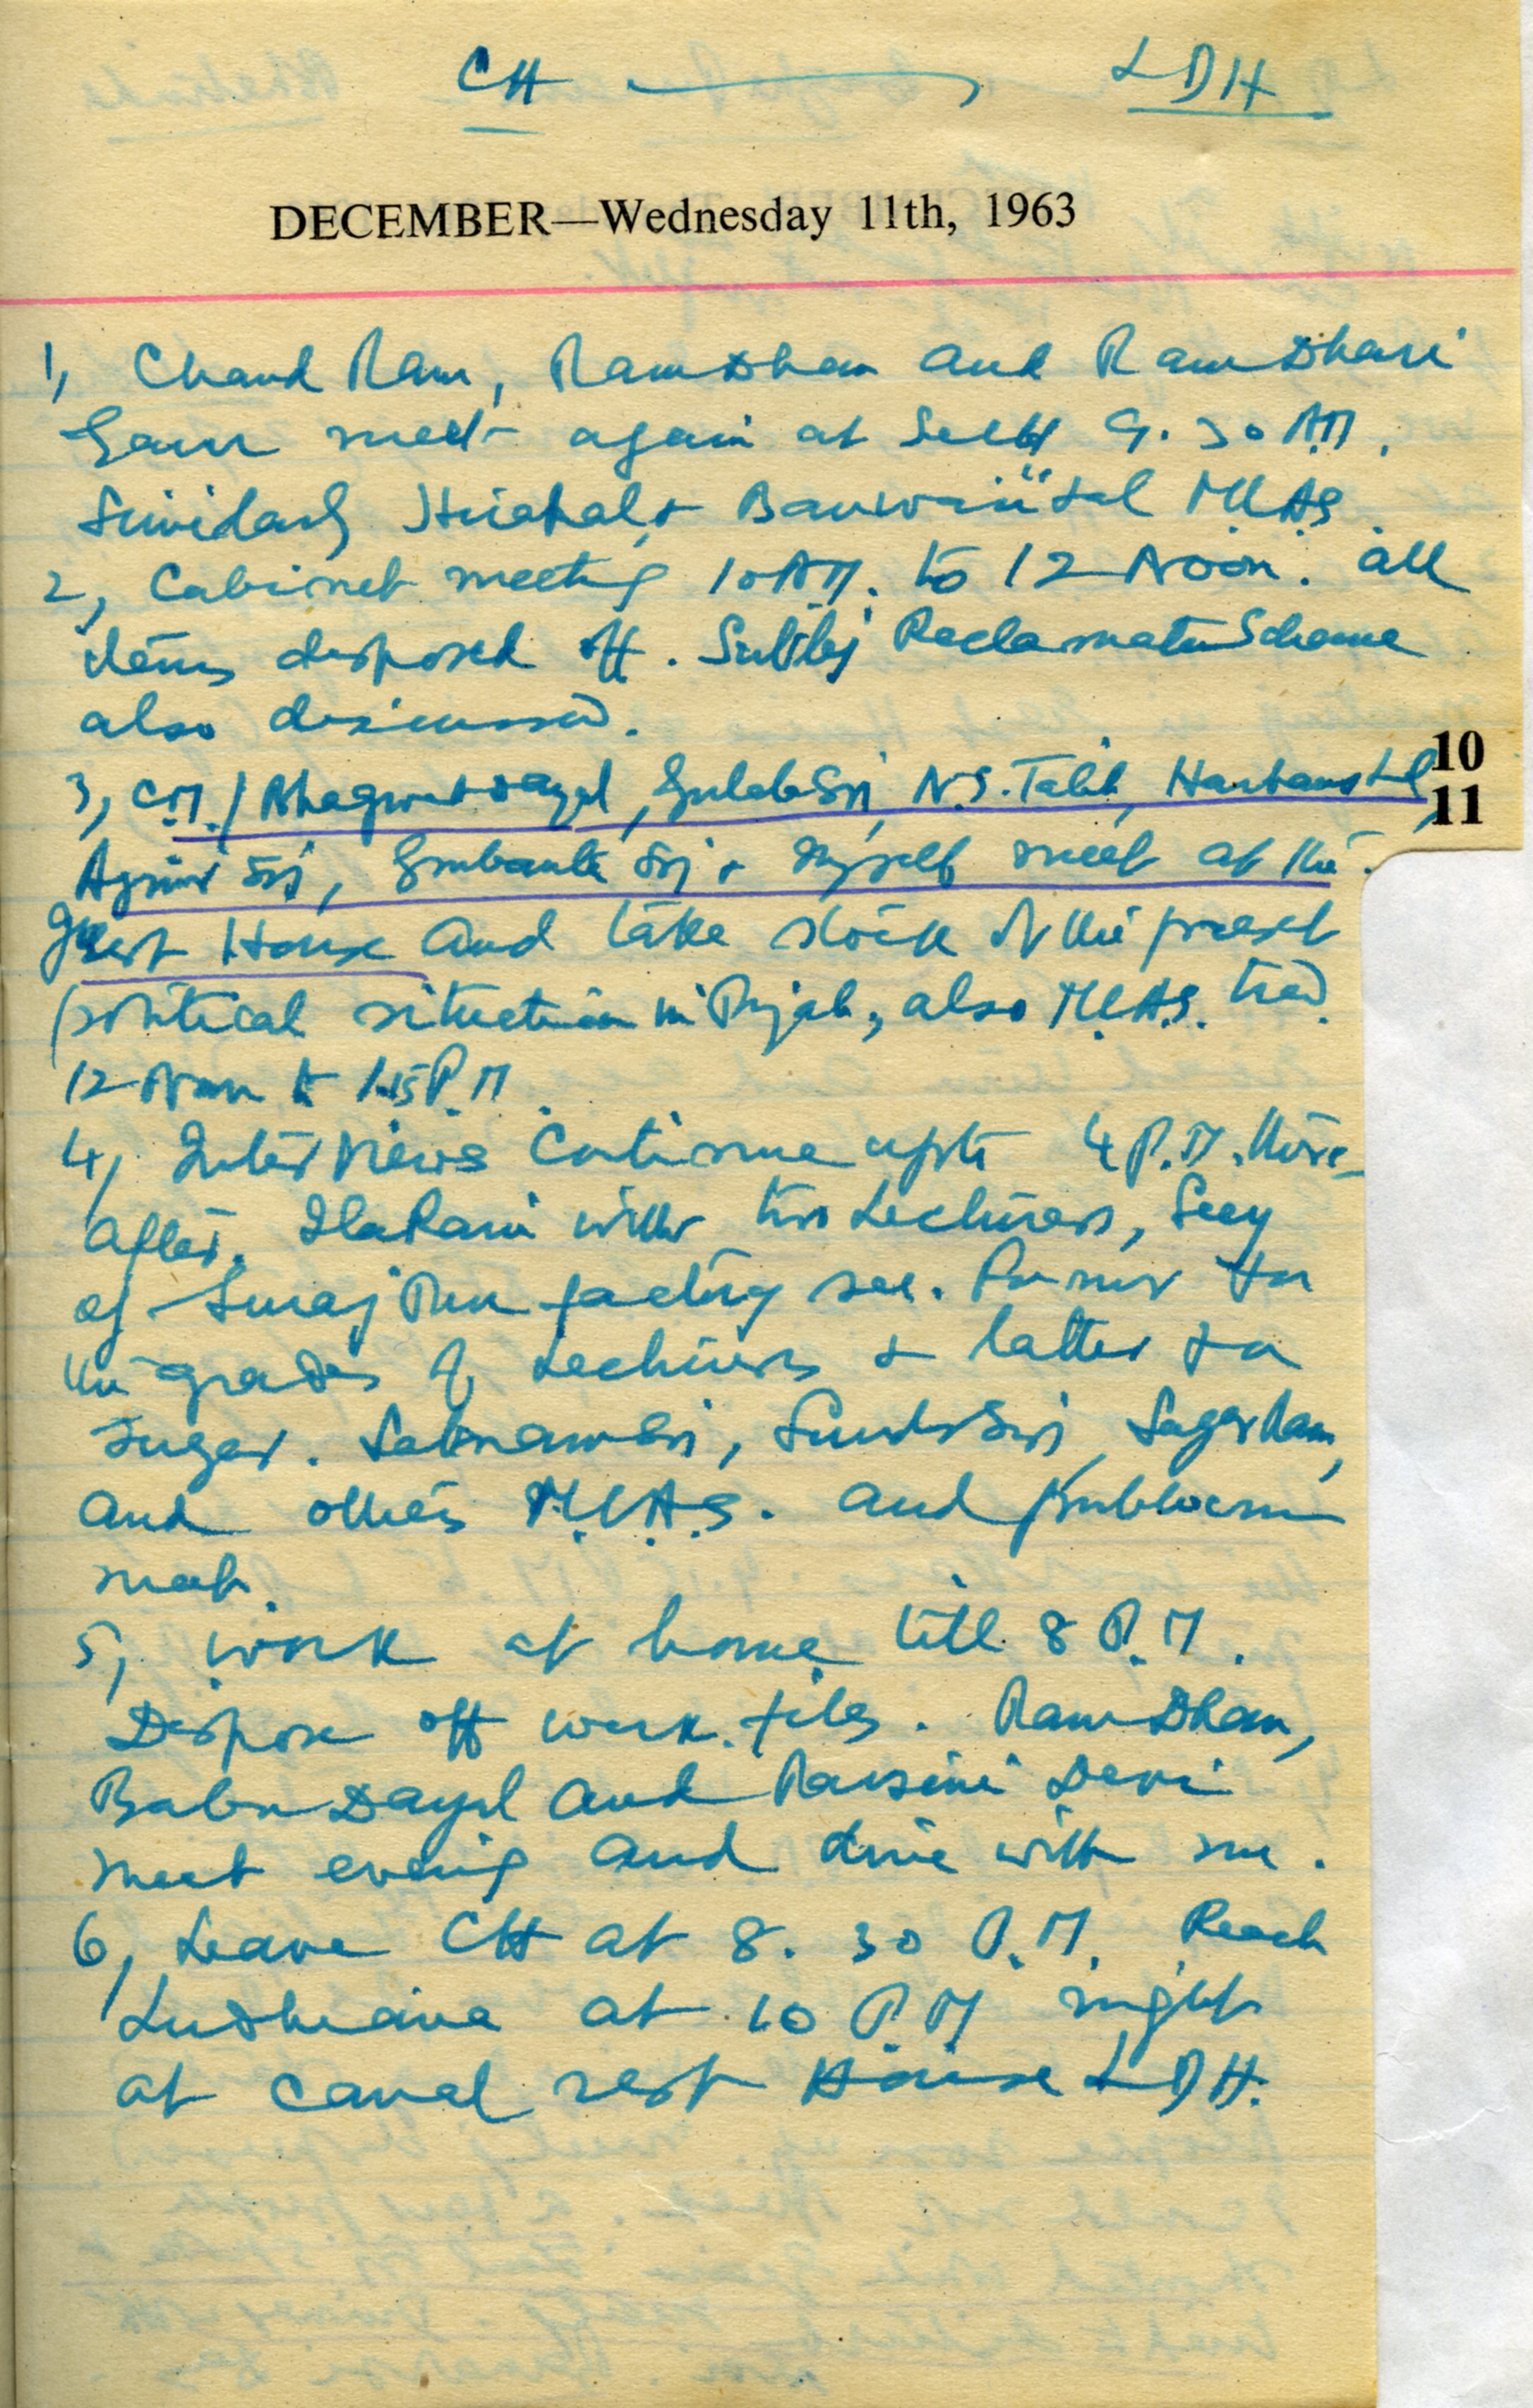 CH — LDH
DECEMBER—Wednesday 11th, 1963
1, Chand Ram, Ram Dhan and Ram Dhari
Gaur meet again at 9.30 AM.
Banwari Lal M.L.A.S.
2, Cabinet meeting 10 AM. to 12 Noon. all
items disposed off. Sutlej Reclamation Scheme
also discussed.
10
11
3, C.M./Bhagwat Dayal, Gulab Sij, N.S. Talib, Harbans Lal,
Ajmir Sij, Gurbanta Sij + myself meet at the
Guest House and take stock of the presest
political situation in Pujab, also M.L.A.S. too.
12 Noon to 1.15 P.M.
4, Interviews Continue upto 4 P.M. there-
after. Ila Rani with two Lecturers, Secy
of factory see. Former for
the grades of Lecturers + latter for
sugar. Satnam Sij, Sunder Sij, Sager Ram,
and others M.L.A.S. and
meet.
5, work at home till 8 P.M.
Dispose off work files. Ram Dhan,
Babu Dayal and Devi
meet evenig and dine with me.
6, Leave CH at 8.30 P.M. Reach
Ludhiana at 10 P.M night
at canal rest House LDH.